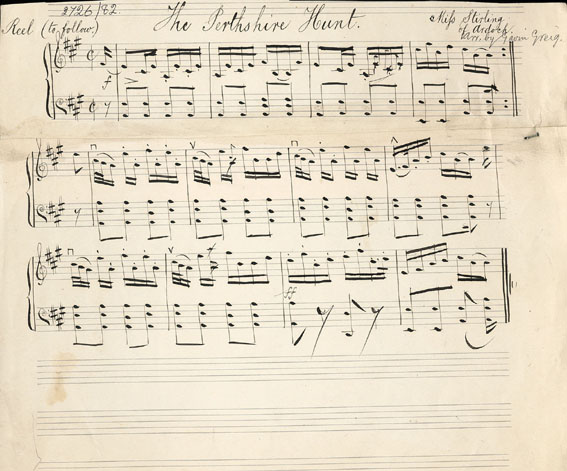 2726/82
The Perthshire Hunt.
Reel (to follow.)
Miss Stirling
of Ardoch.
Arr. by Gavin Greig.
ff